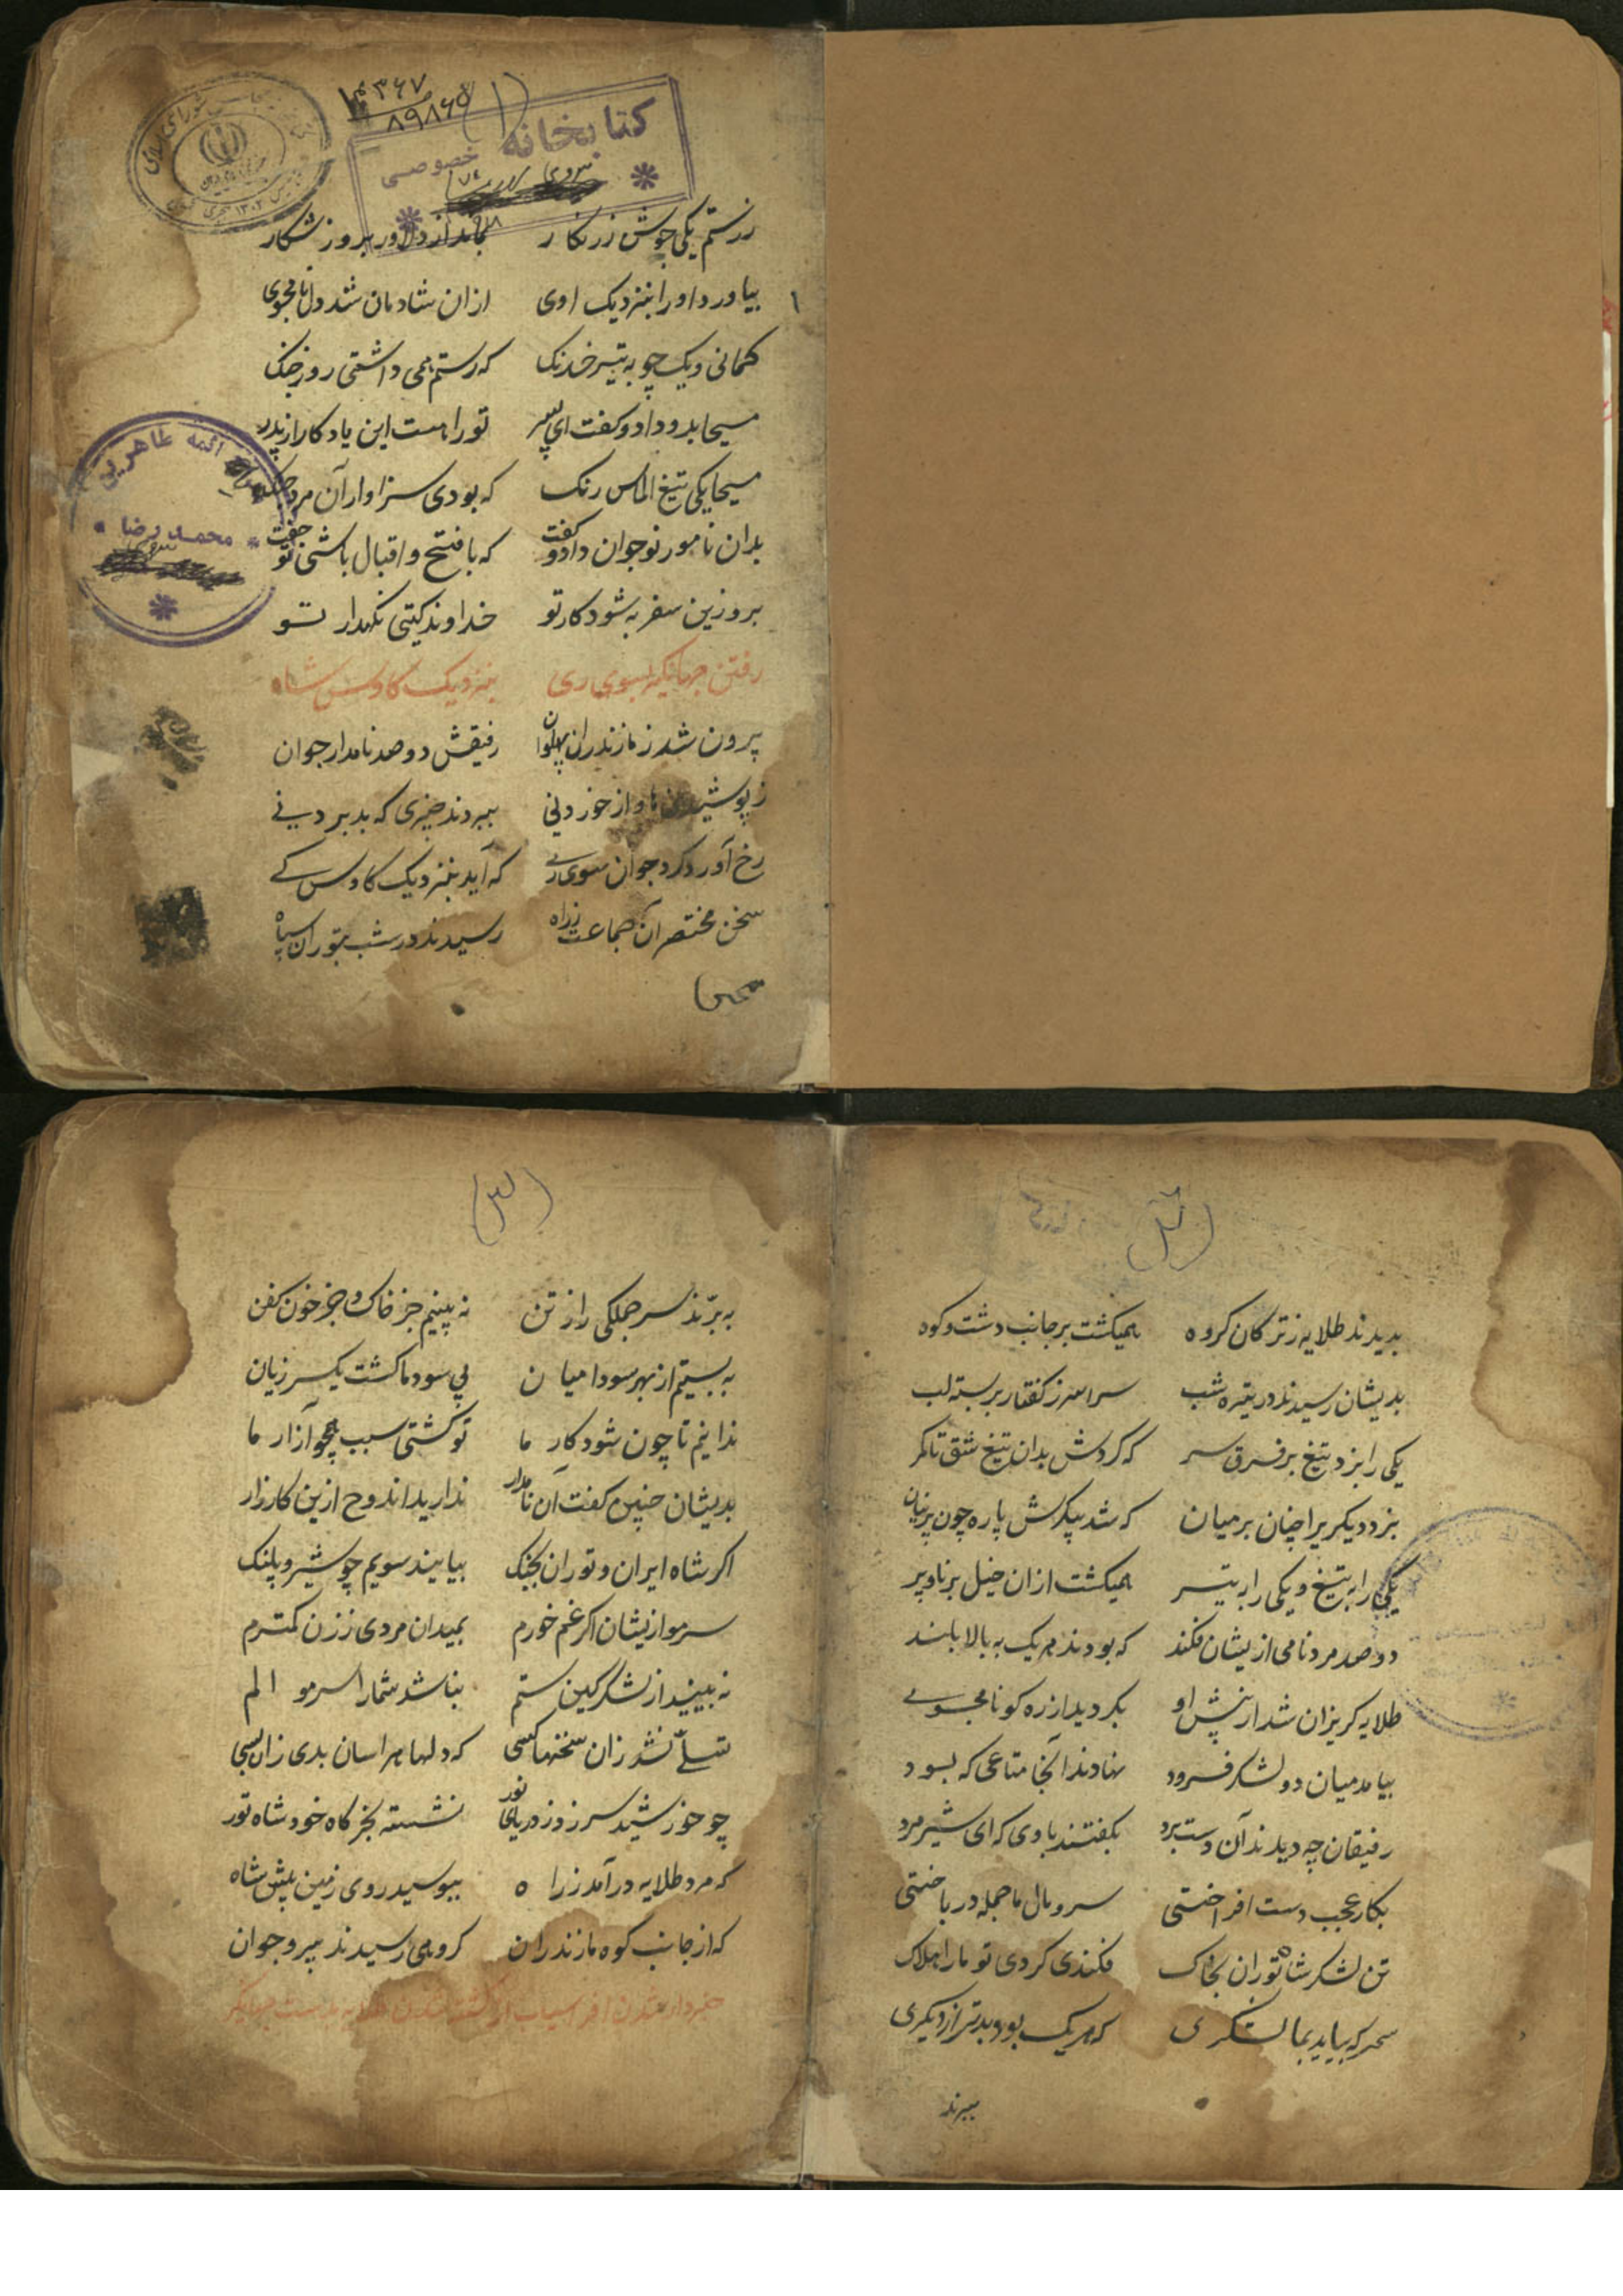 ۳۶۷
۸۹۸۶۵
(۱)
کتابخانه
خصوصی
زرستم یکی جوش زرنکار بماند از دلاور بروز شکار
بیاورد او را بنزدیک اوی ازان شادمان شد دل نامجوی
۱
کمانی و یک چوبه تیر خدنک که رستم همی داشتی روز جنک
مسیحا بدو داد و کفت ای پسر تو را هست این یادکار از پدر
مسیحا یکی تیغ الماس رنک که بودی سزاوار آن مرد جنک
بدان نامور نوجوان داد و کفت که با فتح و اقبال باشی تو جفت
برو زین سفر به شود کار تو خداوند کیتی نکهدار تو
ائمه طاهرین
محمد رضا
رفتن جهانکیر بسوی ری بنزدیک کاوس شاه
برون شد ز مازندران پهلوان رفیقش دو صد نامدار جوان
ز پوشیدن ها و از خوردنی ببردند چیزی که بد بردنی
رخ آورد کرد جوان سوی ری که آید بنزدیک کاوس کی
سخن مختصر آن جماعت زراه رسیدند در شب بتوران سپاه
بدیدند طلایه ز ترکان کروه همیکشت بر جانب دشت و کوه
بدیشان رسیدند در تیره شب سراسر ز کفتار بر بسته لب
یکی را بزد تیغ بر فرق سر که کردش بدان تیغ شق تا کمر
بزد دیکریرا چنان بر میان که شد پیکرش پاره چون پرنیان
یکی را به تیغ و یکی را به تیر همیکشت ازان خیل برنا و پیر
دو صد مرد نامی ازیشان فکند که بودند هر یک به بالا بلند
طلایه کریزان شد از پیش او بکردید از ره کو نامجوی
بیامد میان دو لشکر فرود نهادند آنجا متاعی که بود
رفیقان چه دیدند آن دست برد بکفتند با وی که ای شیر مرد
بکار عجب دست افراختی سر و مال ما جمله در باختی
تن لشکر شاه توران بخاک فکندی کردی تو ما را هلاک
سحر که بیاید بما لشکری که هر یک بود بدتر از دیکری
ببرند
(۳)
به برّند سر جملکی را ز تن نه بینیم جز خاک و جز خون کفن
به بستیم از بهر سودا میان پی سود ما کشت یکسر زیان
ندانیم تا چون شود کار ما تو کشتی سبب بهر آزار ما
بدیشان چنین کفت آن نامدار ندارید اندوح ازین کارزار
اکر شاه ایران و توران بجنک بیایند سویم چو شیر و پلنک
سر مو ازیشان اکر غم خورم بمیدان مردی ز زن کمترم
نه بینید از لشکر کین ستم نباشد شما را سر مو الم
تسلّی نشد زان سخنها کسی که دلها هراسان بدی زان بسی
چو خورشید سر زد ز دریای نور نشسته بخرکاه خود شاه تور
که مرد طلایه در آمد ز راه ببوسید روی زمین پیش شاه
که از جانب کوه مازندران کروهی رسیدند پیر و جوان
خبردار شدن افراسیاب از کشته شدن طلایه بدست جهانکیر